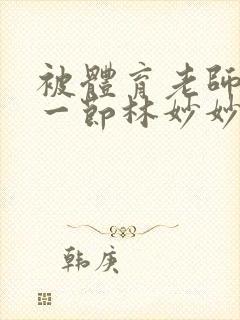 被體育老師
一節林妙妙
韩庚